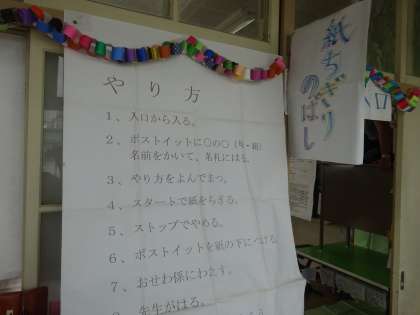 やり方
1、入口から入る。
2、ポストイットに〇の〇(年・組)
名前をかいて、名札にはる。
3、やり方をよんでまつ。
4、スタートで紙をちぎる。
5、ストップでやめる。
6、ポストイットを紙の下につける。
7、おせわ係にわたす。
8、先生がはる。
紙ちぎり
のばし
入口